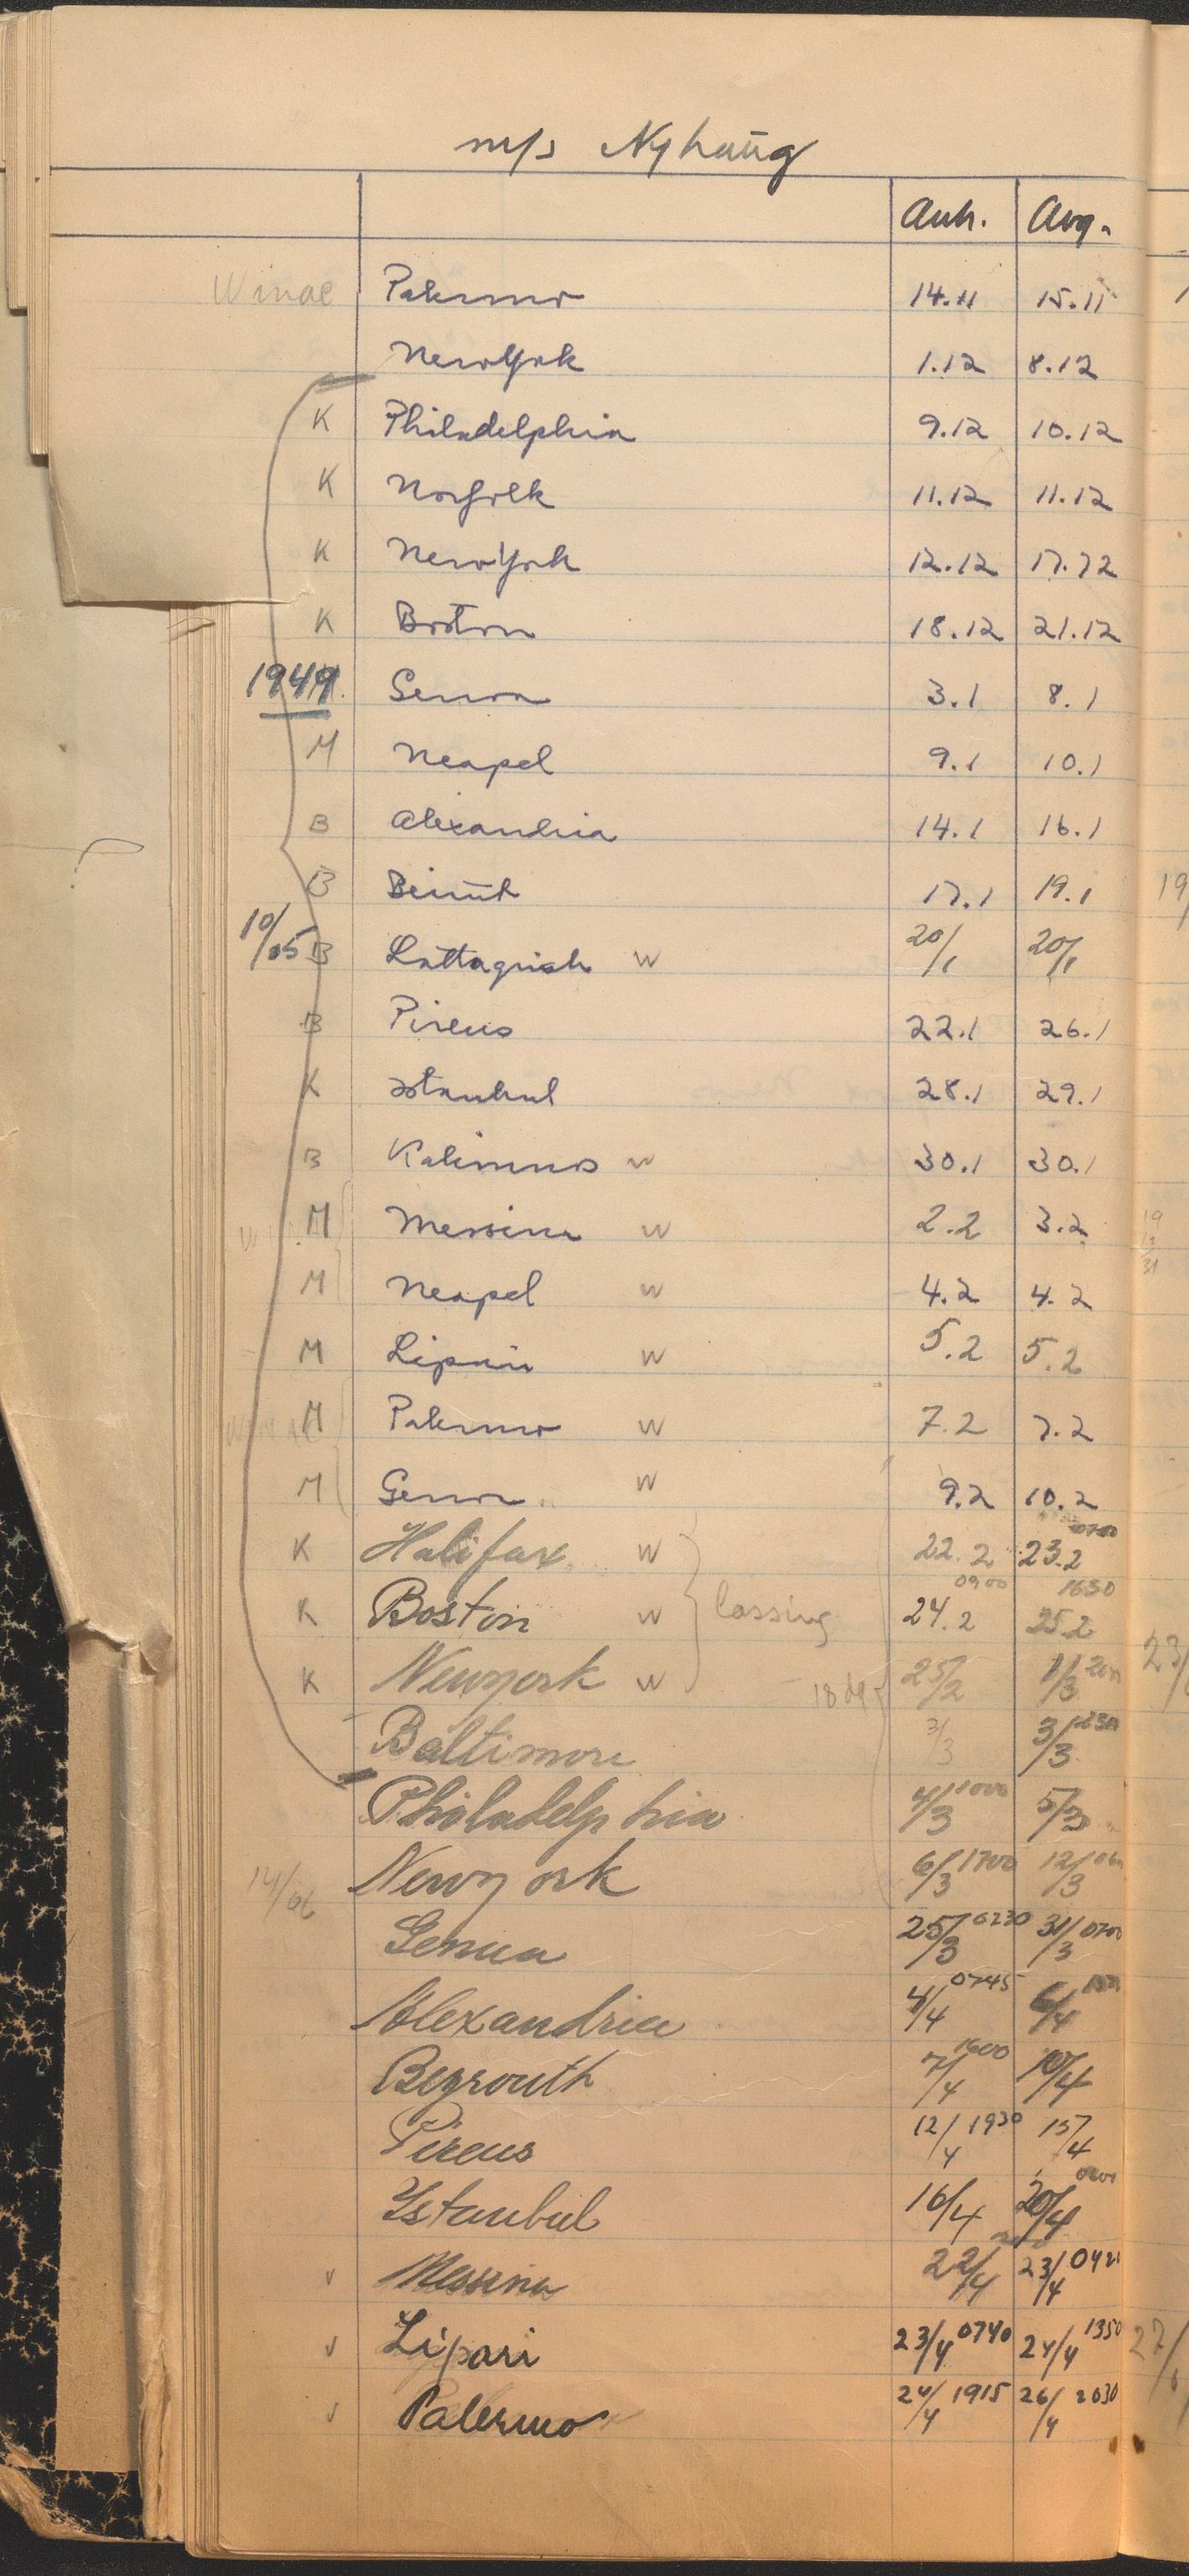 m/s Nyhaug
Ank. Avg.
Palermo 14.11 15.11
New York 1.12 8.12
K Philadelphia 9.12 10.12
K Norfolk 11.12 11.12
K New York 12.12 17.12
K Boston 18.12 21.12
1949. Genoa 3.1 8.1
M Neapel 9.1 10.1
B Alexandria 14.1 16.1
B Beirut 17.1 19.1
10/05 B Lattaquiah W 20/1 20/1
B Pireus 22.1 26.1
K Istanbul 28.1 29.1
B Kalimnos W 30.1 30.1
M Messina W 2.2 3.2
M Neapel W 4.2 4.2
M Lipari W 5.2 5.2
M Palermo W 7.2 7.2
M Genoa W 9.2 10.2
K Halifax W 22.2 23.2 0700
K Boston W lossing 24.2 0900 25.2 1630
K Newyork W 25/2 1/3
Baltimore 3/3 3/3
Philadelphia 4/3 1000 5/3
14/06 Newyork 6/3 1700 12/3
Genua 25/3 0230 31/3 0700
Alexandria 4/4 0745 6/4
Beyrouth 7/4 1600 10/4
Pireus 12/4 1930 15/4
Ystanbul 16/4 20/4
v Messina 22/4 23/4
v Lipari 23/4 0740 24/4 1350
v Palermo 24/4 1915 26/4 2030